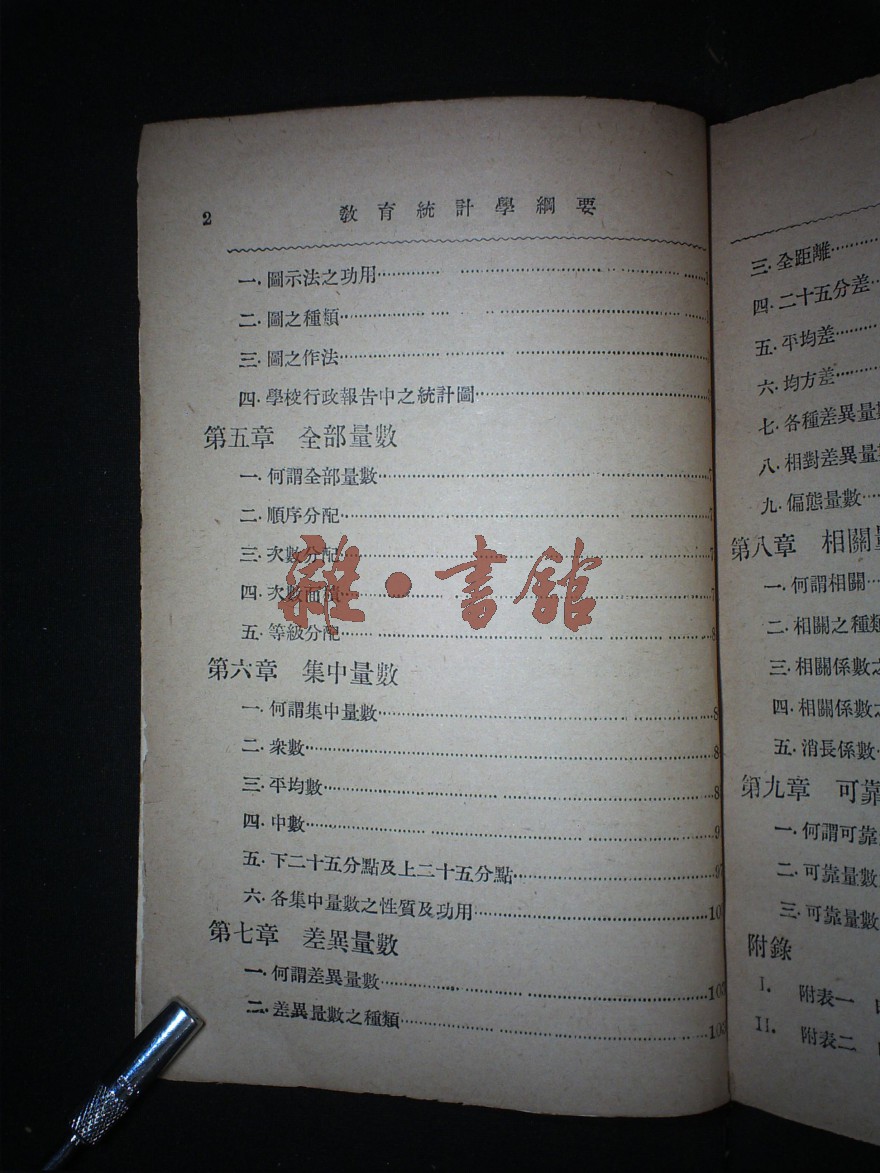 2
教育統計學綱要
一.圖示法之功用
二.圖之種類
三.圖之作法
四.學校行政報告中之統計圖
第五章 全部量數
一.何謂全部量數……7
二.順序分配……7
三.次數分配……7
四.次數面積……7
五.等級分配……8
第六章 集中量數
一.何謂集中量數……8
二.衆數……8
三.平均數……8
四.中數……9
五.下二十五分點及上二十五分點……97
六.各集中量數之性質及功用……10
第七章 差異量數
一.何謂差異量數……10
二.差異量數之種類……10
三.全距離
四.二十五分差
五.平均差
六.均方差
七.各種差異量數
八.相對差異量
九.偏態量數
第八章 相關量
一.何謂相關
二.相關之種類
三.相關係數之
四.相關係數之
五.消長係數
第九章 可靠
一.何謂可靠
二.可靠量數
三.可靠量數
附錄
I. 附表一
II. 附表二
雜·書館